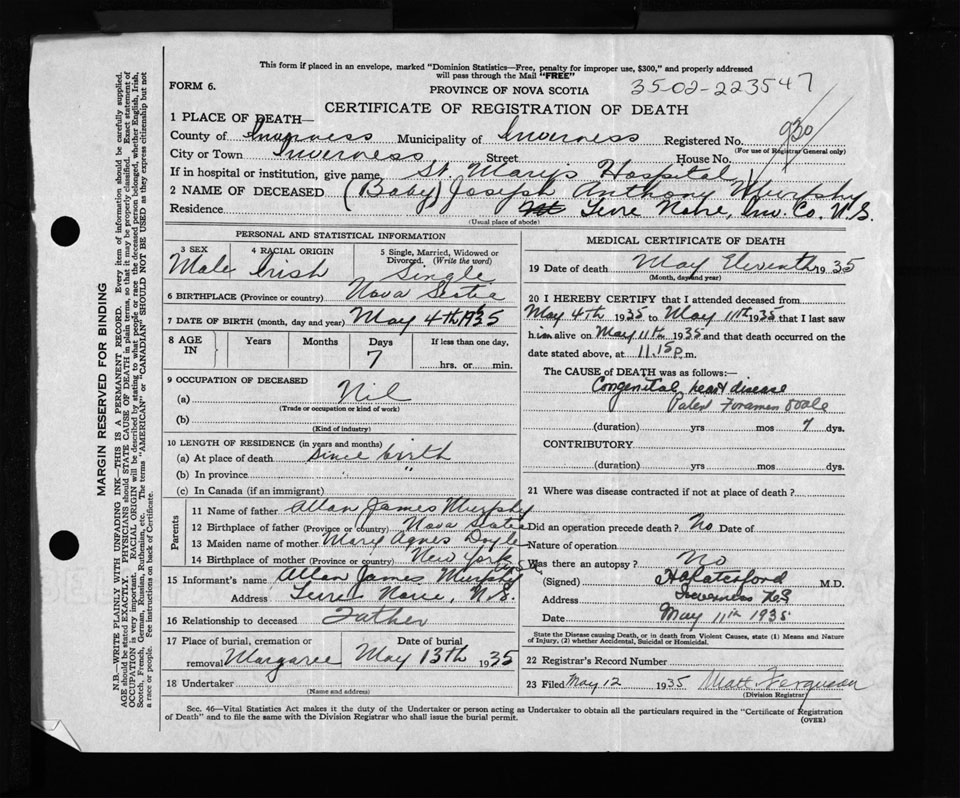 This form if placed in an envelope, marked "Dominion Statistics—Free, penalty for improper use, $300," and properly addressed
will pass through the Mail "FREE"
FORM 6.
PROVINCE OF NOVA SCOTIA
35-02-223547
CERTIFICATE OF REGISTRATION OF DEATH
1 PLACE OF DEATH—
County of Inverness Municipality of Inverness Registered No. 930
(For use of Registrar General only)
City or Town Inverness Street House No.
If in hospital or institution, give name St. Marys Hospital
2 NAME OF DECEASED (Baby) Joseph Anthony Murphy
Residence Terre Noire, Inv. Co. N.S.
(Usual place of abode)
PERSONAL AND STATISTICAL INFORMATION
3 SEX Male
4 RACIAL ORIGIN Irish
5 Single, Married, Widowed or Divorced. (Write the word) Single
6 BIRTHPLACE (Province or country) Nova Scotia
7 DATE OF BIRTH (month, day and year) May 4th 1935
8 AGE IN Years Months Days 7 If less than one day, hrs. or min.
9 OCCUPATION OF DECEASED
(a) Nil
(Trade or occupation or kind of work)
(b)
(Kind of industry)
10 LENGTH OF RESIDENCE (in years and months)
(a) At place of death Since birth
(b) In province " "
(c) In Canada (if an immigrant)
Parents
11 Name of father Allan James Murphy
12 Birthplace of father (Province or country) Nova Scotia
13 Maiden name of mother Mary Agnes Doyle
14 Birthplace of mother (Province or country) New York
15 Informant's name Allan James Murphy
Address Terre Noire, N.S.
16 Relationship to deceased Father
17 Place of burial, cremation or removal Margaree Date of burial May 13th 1935
18 Undertaker
(Name and address)
MEDICAL CERTIFICATE OF DEATH
19 Date of death May Eleventh 1935
(Month, day and year)
20 I HEREBY CERTIFY that I attended deceased from
May 4th 1935 to May 11th 1935 that I last saw
him alive on May 11th 1935 and that death occurred on the
date stated above, at 11.15 p.m.
The CAUSE of DEATH was as follows:—
Congenital heart disease
Patent Foramen Ovale
(duration) yrs mos 7 dys.
CONTRIBUTORY
(duration) yrs mos dys.
21 Where was disease contracted if not at place of death?
Did an operation precede death? No Date of
Nature of operation
Was there an autopsy? No
(Signed) M.D.
Address Inverness N.S
Date May 11th 1935
State the Disease causing Death, or in death from Violent Causes, state (1) Means and Nature
of Injury, (2) whether Accidental, Suicidal or Homicidal.
22 Registrar's Record Number
23 Filed May 12 1935 Matt Ferguson
(Division Registrar)
Sec. 46—Vital Statistics Act makes it the duty of the Undertaker or person acting as Undertaker to obtain all the particulars required in the "Certificate of Registration
of Death" and to file the same with the Division Registrar who shall issue the burial permit.
(OVER)
MARGIN RESERVED FOR BINDING
N.B.—WRITE PLAINLY WITH UNFADING INK—THIS IS A PERMANENT RECORD. Every item of information should be carefully supplied.
AGE should be stated EXACTLY. PHYSICIANS should STATE CAUSE OF DEATH in plain terms, so that it may be properly classified. Exact statement of
OCCUPATION is very important. RACIAL ORIGIN will be described by stating to what people or race the deceased person belonged, whether English, Irish,
Scotch, French, German, Russian, Ruthenian, etc. The terms "AMERICAN" or "CANADIAN" SHOULD NOT BE USED as they express citizenship but not
a race or people. Fee instructions on back of Certificate.